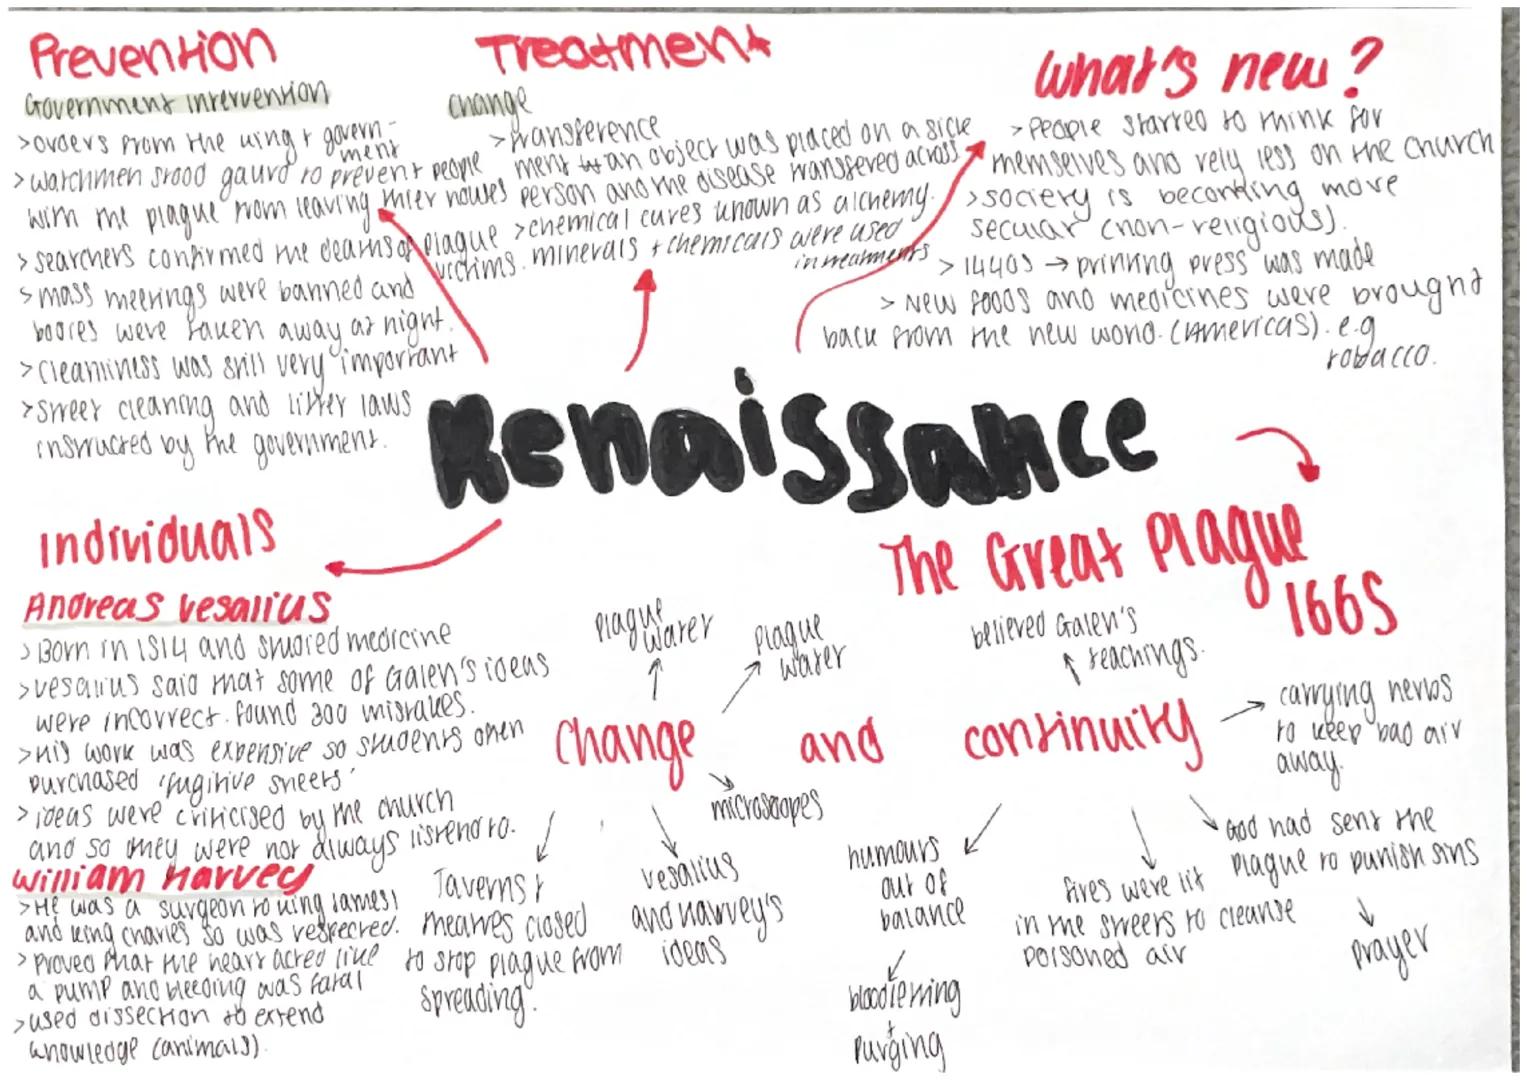 Prevention
Government intervention
>orders from the king + govern-
ment
>watchmen stood gaurd to prevent people
with the plague from leaving thier houses
>searchers confirmed the deaths of plague
victims.
>mass meetings were banned and
bodies were taken away at night.
>cleanliness was still very important
>street cleaning and litter laws
instructed by the government.
Treatment
change
>transference
ment an object was placed on a sick
person and the disease transfered across
>chemical cures known as alchemy.
minerals + chemicals were used
in treatments
What's new?
>People started to think for
themselves and rely less on the church
>society is becoming more
secular (non-religious).
>1440s → printing press was made
>New foods and medicines were brought
back from the new world. (Americas). e.g
tobacco.
Renaissance
Individuals
Andreas Vesalius
>Born in 1514 and studied medicine
>Vesalius said that some of Galen's ideas
were incorrect. found 300 mistakes.
>His work was expensive so students often
purchased 'fugitive sheets'
>ideas were criticised by the church
and so they were not always listend to.
William Harvey
>He was a surgeon to king James I
and king Charles so was respected.
>Proved that the heart acted like
a pump and bleeding was fatal
>used dissection to extend
knowledge (animals).
The Great Plague
1665
Change and continuity
plague
water
plague
water
microscopes
Taverns +
theatres closed
to stop plague from
spreading.
Vesalius
and Harvey's
ideas
believed Galen's
teachings.
carrying herbs
to keep bad air
away.
God had sent the
plague to punish sins
prayer
fires were lit
in the streets to cleanse
poisoned air
humours
out of
balance
bloodletting
+
purging